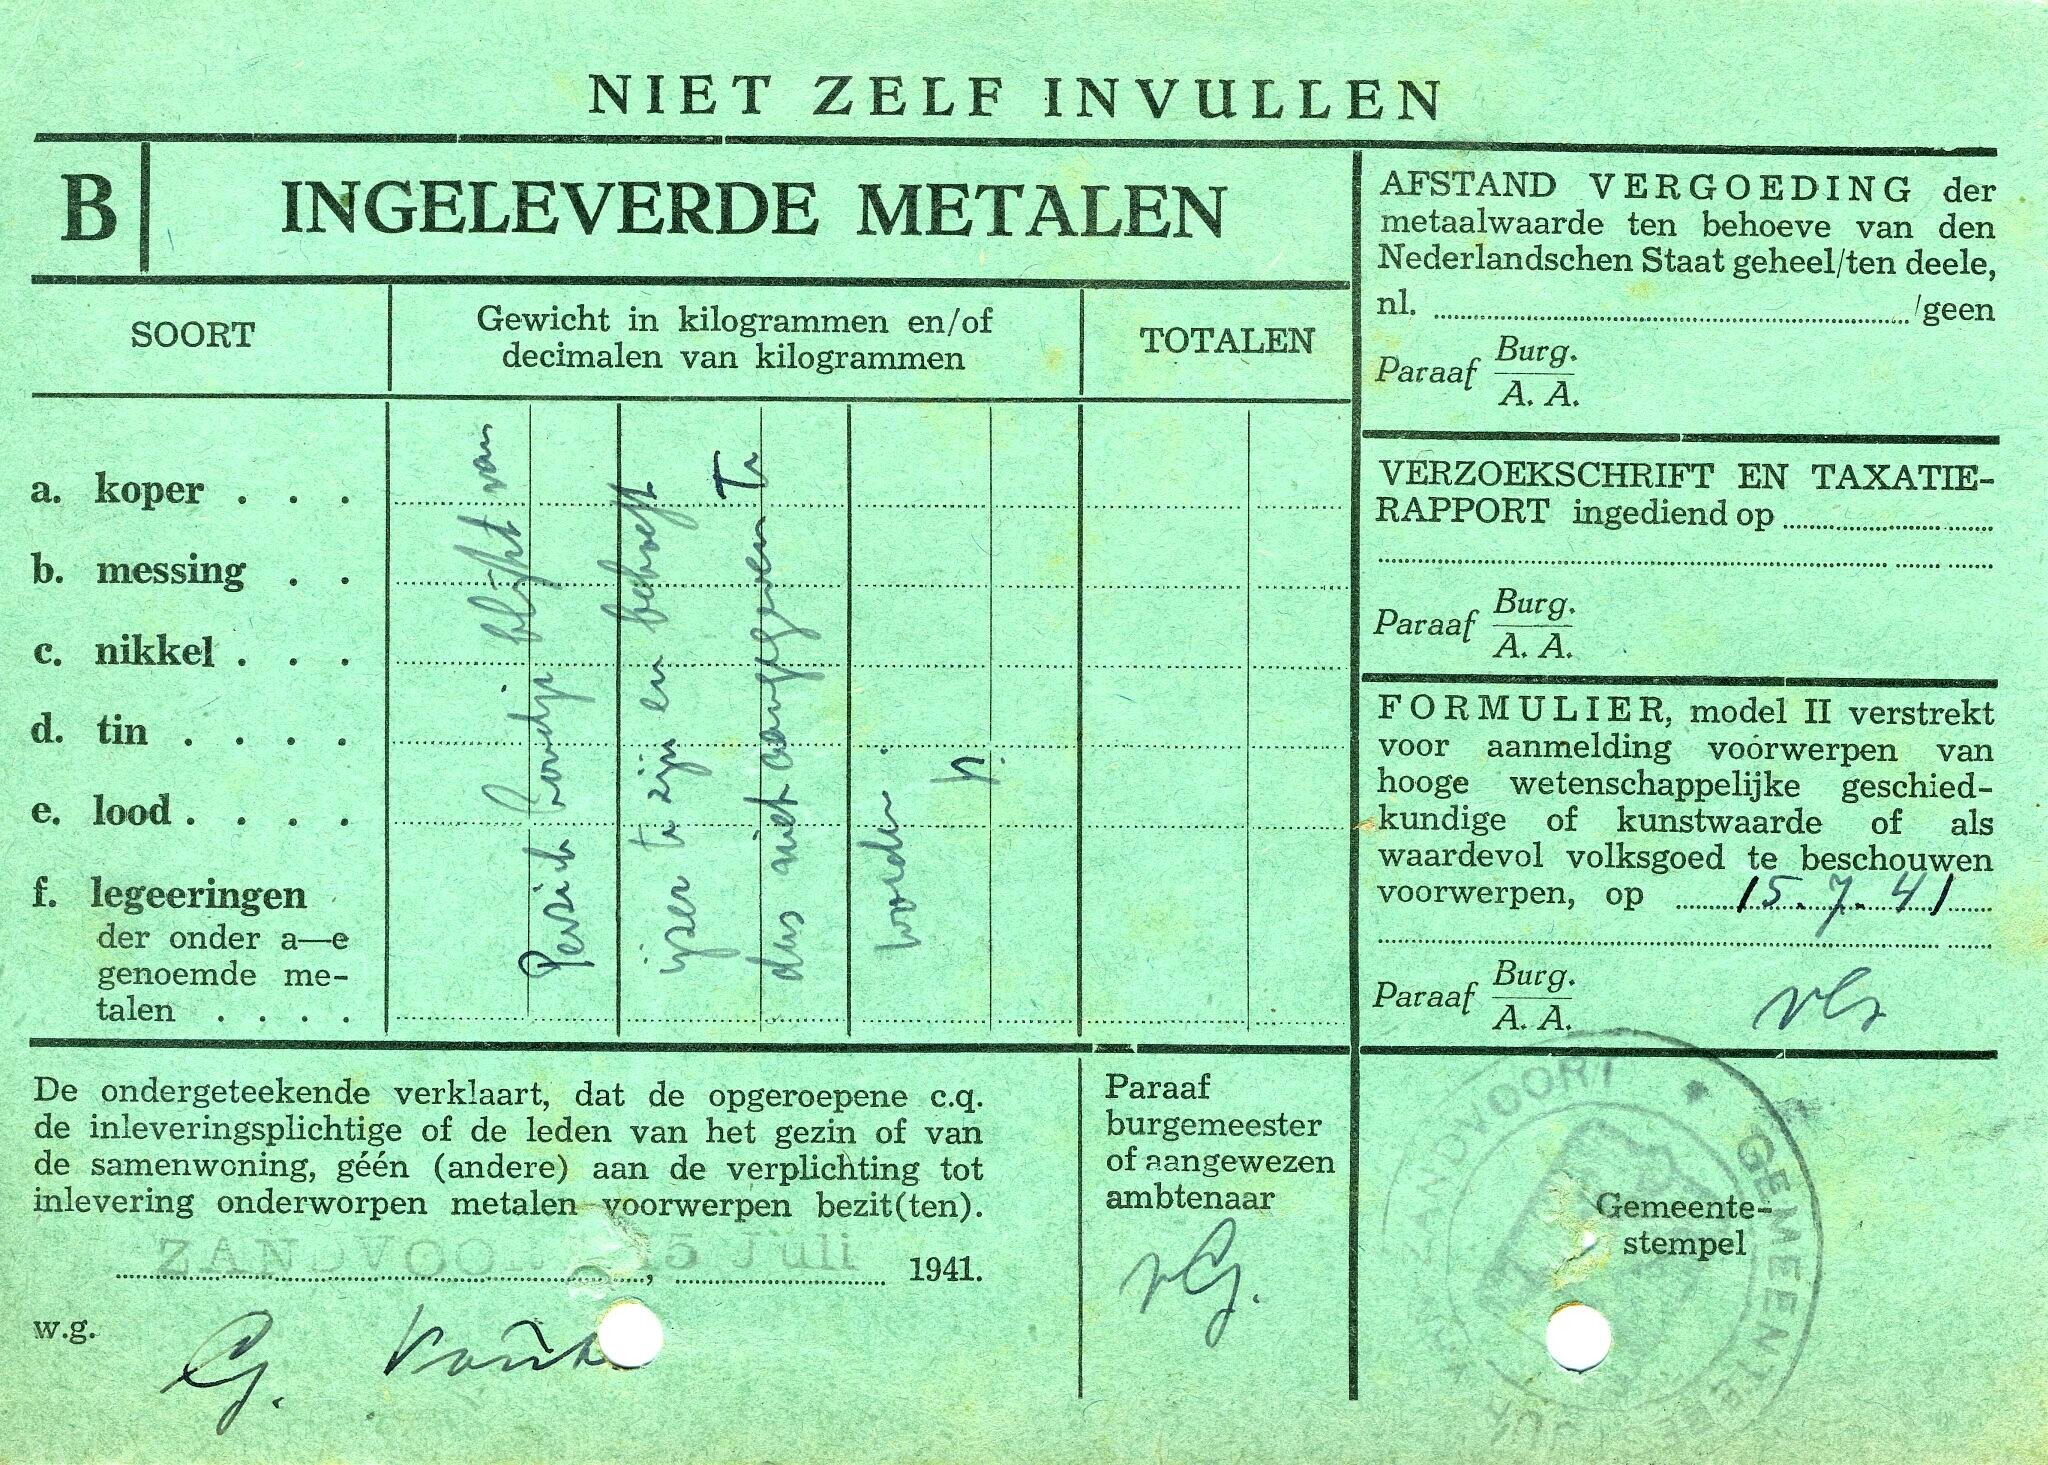 NIET ZELF INVULLEN
B
INGELEVERDE METALEN
SOORT
Gewicht in kilogrammen en/of
decimalen van kilogrammen
TOTALEN
a. koper . . .
b. messing . .
c. nikkel . . .
d. tin . . . .
e. lood . . . .
f. legeeringen
der onder a—e
genoemde me-
talen . . . .
blijkt van
ijzer te zijn en behoeft
dus niet aangegeven Te
worden.
AFSTAND VERGOEDING der
metaalwaarde ten behoeve van den
Nederlandschen Staat geheel/ten deele,
nl. /geen
Paraaf Burg.
A. A.
VERZOEKSCHRIFT EN TAXATIE-
RAPPORT ingediend op
Paraaf Burg.
A. A.
FORMULIER, model II verstrekt
voor aanmelding voorwerpen van
hooge wetenschappelijke geschied-
kundige of kunstwaarde of als
waardevol volksgoed te beschouwen
voorwerpen, op 15.7.41
Paraaf Burg.
A. A.
De ondergeteekende verklaart, dat de opgeroepene c.q.
de inleveringsplichtige of de leden van het gezin of van
de samenwoning, géén (andere) aan de verplichting tot
inlevering onderworpen metalen voorwerpen bezit(ten).
ZANDVOORT, 15 Juli 1941.
w.g.
G.
Paraaf
burgemeester
of aangewezen
ambtenaar
vG.
Gemeente-
stempel
ZANDVOORT * GEMEENTEBESTUUR